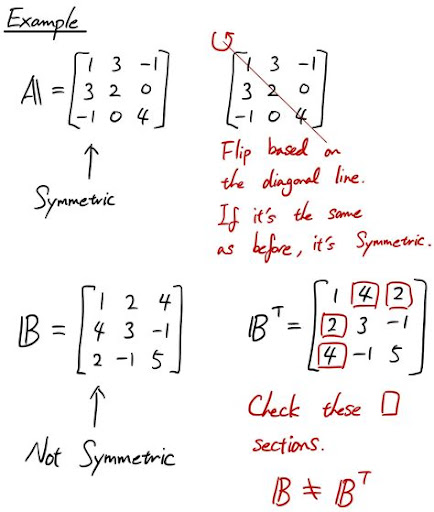 Example
A = [1 3 -1
3 2 0
-1 0 4]
↑
Symmetric
[1 3 -1
3 2 0
-1 0 4]
Flip based on
the diagonal line.
If it's the same
as before, it's Symmetric.
B = [1 2 4
4 3 -1
2 -1 5]
↑
Not Symmetric
B^T = [1 4 2
2 3 -1
4 -1 5]
Check these □
sections.
B ≠ B^T